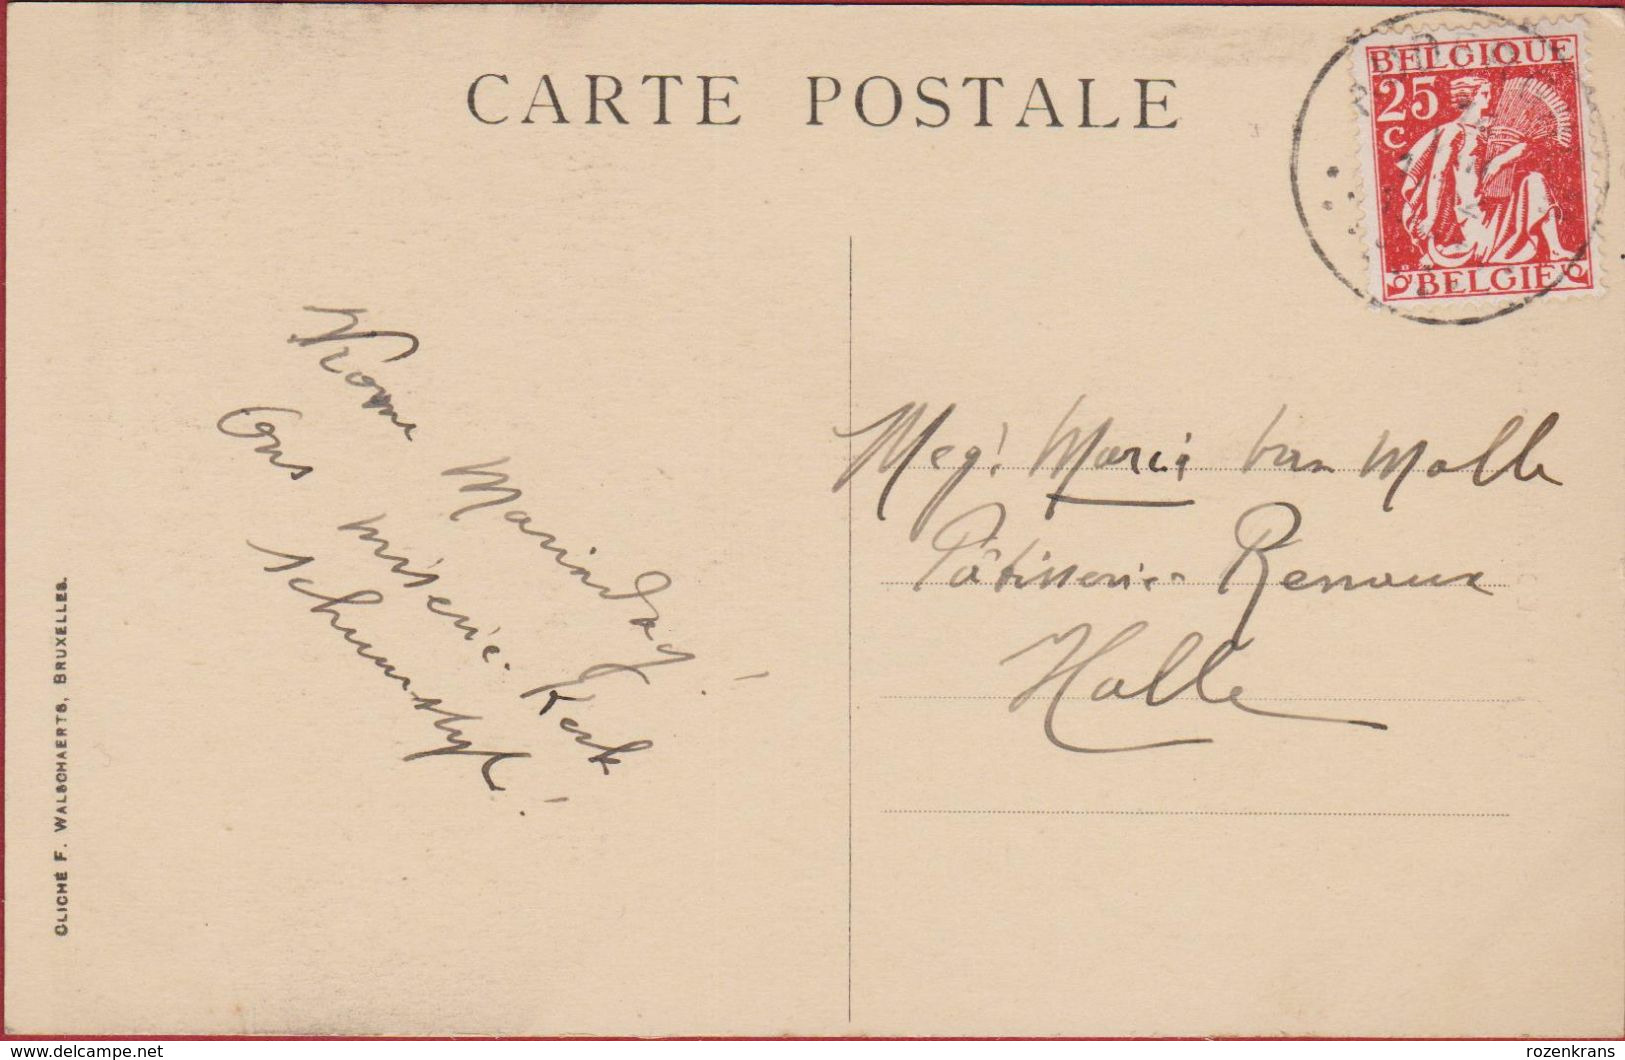 CARTE POSTALE
BELGIQUE
25
C
BELGIË
Vrome
Mariadag!
Ons miserie. Kerk
schuurstyl!
Megj. Maria van Malle
Pâtisserie Renoux
Halle
CLICHÉ F. WALSCHAERTS, BRUXELLES.
delcampe.net
rozenkrans